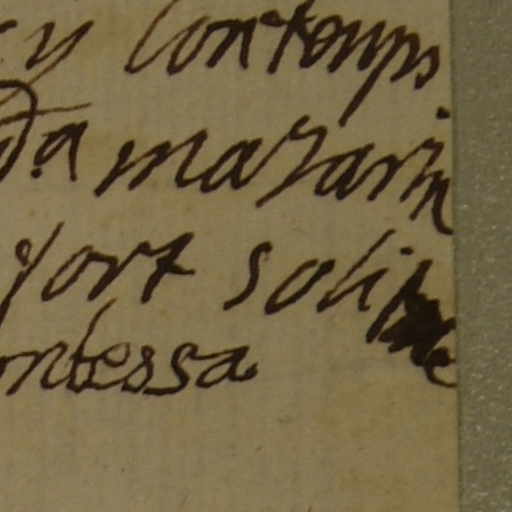 y Contemps
da mazarin
fort soli
ontessa